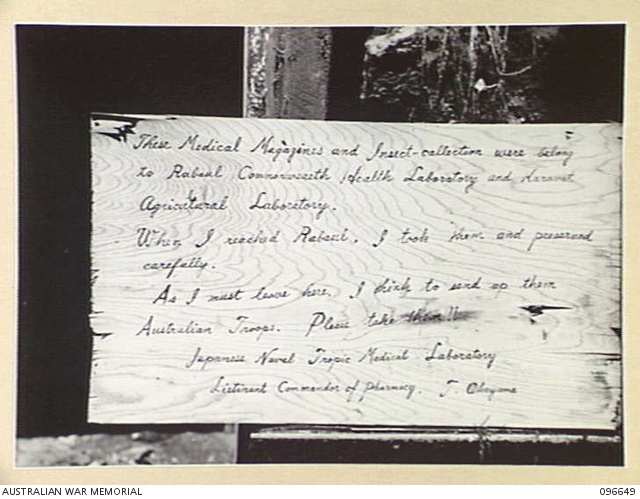 These Medical Magazines and Insect-callection were belong
to Rabaul Commonwaeth Health Laboratory and Keravat
Agricutural Laboratory.
When I reached Rabaul, I took them and preserved
carefully.
As I must leave here, I think to send up them
Australian Troops. Please take them!!
Japanese Naval Tropic Medical Laboratory
Lietinent Commandor of Pharmacy. T.
AUSTRALIAN WAR MEMORIAL
096649